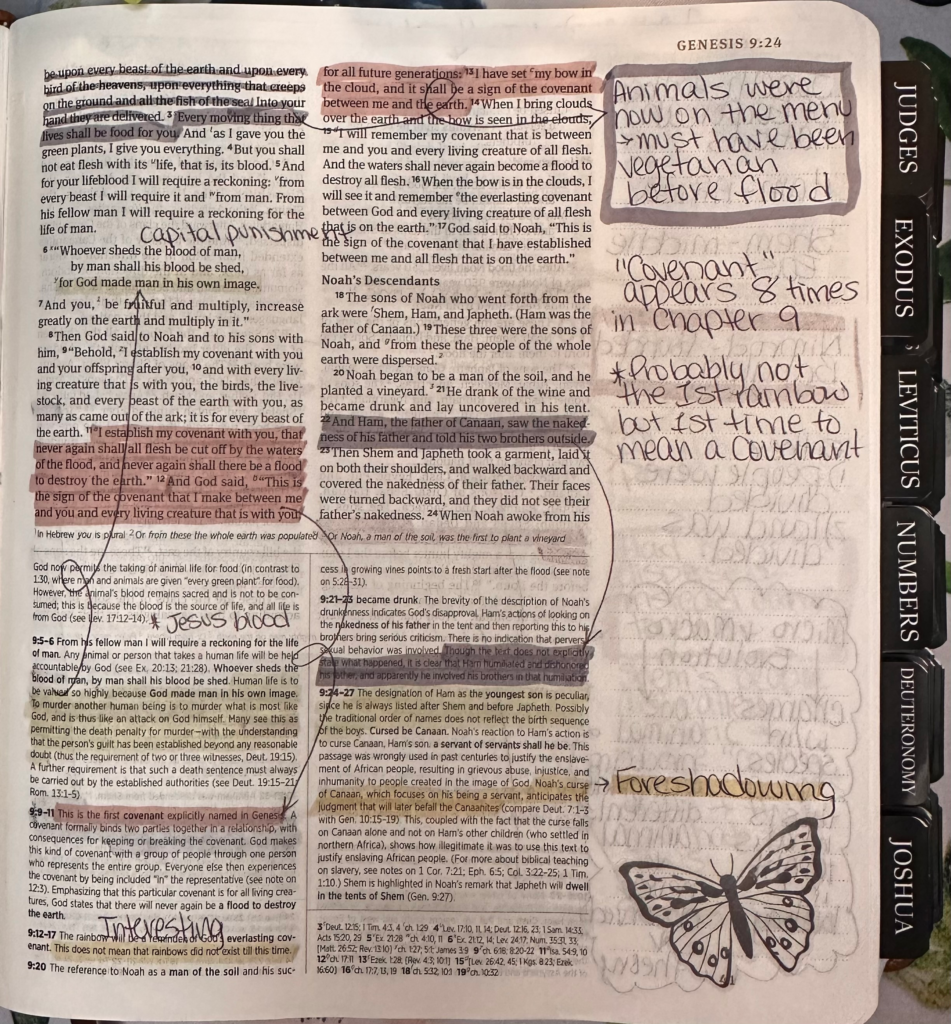 GENESIS 9:24
be upon every beast of the earth and upon every
bird of the heavens, upon everything that creeps
on the ground and all the fish of the sea. Into your
hand they are delivered. 3 Every moving thing that
lives shall be food for you. And as I gave you the
green plants, I give you everything. 4 But you shall
not eat flesh with its life, that is, its blood. 5 And
for your lifeblood I will require a reckoning: from
every beast I will require it and from man. From
his fellow man I will require a reckoning for the
life of man.
capital punishment
6 "Whoever sheds the blood of man,
by man shall his blood be shed,
for God made man in his own image.
7 And you, be fruitful and multiply, increase
greatly on the earth and multiply in it."
8 Then God said to Noah and to his sons with
him, 9 "Behold, I establish my covenant with you
and your offspring after you, 10 and with every liv-
ing creature that is with you, the birds, the live-
stock, and every beast of the earth with you, as
many as came out of the ark; it is for every beast of
the earth. 11 I establish my covenant with you, that
never again shall all flesh be cut off by the waters
of the flood, and never again shall there be a flood
to destroy the earth." 12 And God said, "This is
the sign of the covenant that I make between me
and you and every living creature that is with you,
for all future generations: 13 I have set my bow in
the cloud, and it shall be a sign of the covenant
between me and the earth. 14 When I bring clouds
over the earth and the bow is seen in the clouds,
15 I will remember my covenant that is between
me and you and every living creature of all flesh.
And the waters shall never again become a flood to
destroy all flesh. 16 When the bow is in the clouds, I
will see it and remember the everlasting covenant
between God and every living creature of all flesh
that is on the earth." 17 God said to Noah, "This is
the sign of the covenant that I have established
between me and all flesh that is on the earth."
Noah's Descendants
18 The sons of Noah who went forth from the
ark were Shem, Ham, and Japheth. (Ham was the
father of Canaan.) 19 These three were the sons of
Noah, and from these the people of the whole
earth were dispersed.2
20 Noah began to be a man of the soil, and he
planted a vineyard.3 21 He drank of the wine and
became drunk and lay uncovered in his tent.
22 And Ham, the father of Canaan, saw the naked-
ness of his father and told his two brothers outside.
23 Then Shem and Japheth took a garment, laid it
on both their shoulders, and walked backward and
covered the nakedness of their father. Their faces
were turned backward, and they did not see their
father's nakedness. 24 When Noah awoke from his
1 In Hebrew you is plural 2 Or from these the whole earth was populated 3 Or Noah, a man of the soil, was the first to plant a vineyard
God now permits the taking of animal life for food (in contrast to
1:30, where man and animals are given "every green plant" for food).
However, the animal's blood remains sacred and is not to be con-
sumed; this is because the blood is the source of life, and all life is
from God (see Lev. 17:12–14).
* Jesus blood
9:5–6 From his fellow man I will require a reckoning for the life
of man. Any animal or person that takes a human life will be held
accountable by God (see Ex. 20:13; 21:28). Whoever sheds the
blood of man, by man shall his blood be shed. Human life is to
be valued so highly because God made man in his own image.
To murder another human being is to murder what is most like
God, and is thus like an attack on God himself. Many see this as
permitting the death penalty for murder—with the understanding
that the person's guilt has been established beyond any reasonable
doubt (thus the requirement of two or three witnesses, Deut. 19:15).
A further requirement is that such a death sentence must always
be carried out by the established authorities (see Deut. 19:15–21;
Rom. 13:1–5).
9:9–11 This is the first covenant explicitly named in Genesis. A
covenant formally binds two parties together in a relationship, with
consequences for keeping or breaking the covenant. God makes
this kind of covenant with a group of people through one person
who represents the entire group. Everyone else then experiences
the covenant by being included "in" the representative (see note on
12:3). Emphasizing that this particular covenant is for all living crea-
tures, God states that there will never again be a flood to destroy
the earth.
Interesting
9:12–17 The rainbow will be a reminder of God's everlasting cov-
enant. This does not mean that rainbows did not exist till this time.
9:20 The reference to Noah as a man of the soil and his suc-
cess in growing vines points to a fresh start after the flood (see note
on 5:28–31).
9:21–23 became drunk. The brevity of the description of Noah's
drunkenness indicates God's disapproval. Ham's actions of looking on
the nakedness of his father in the tent and then reporting this to his
brothers bring serious criticism. There is no indication that perverse
sexual behavior was involved. Though the text does not explicitly
state what happened, it is clear that Ham humiliated and dishonored
his father, and apparently he involved his brothers in that humiliation.
9:24–27 The designation of Ham as the youngest son is peculiar,
since he is always listed after Shem and before Japheth. Possibly
the traditional order of names does not reflect the birth sequence
of the boys. Cursed be Canaan. Noah's reaction to Ham's action is
to curse Canaan, Ham's son. a servant of servants shall he be. This
passage was wrongly used in past centuries to justify the enslave-
ment of African people, resulting in grievous abuse, injustice, and
inhumanity to people created in the image of God. Noah's curse
of Canaan, which focuses on his being a servant, anticipates the
judgment that will later befall the Canaanites (compare Deut. 7:1–3
with Gen. 10:15–19). This, coupled with the fact that the curse falls
on Canaan alone and not on Ham's other children (who settled in
northern Africa), shows how illegitimate it was to use this text to
justify enslaving African people. (For more about biblical teaching
on slavery, see notes on 1 Cor. 7:21; Eph. 6:5; Col. 3:22–25; 1 Tim.
1:10.) Shem is highlighted in Noah's remark that Japheth will dwell
in the tents of Shem (Gen. 9:27).
Animals were
now on the menu
→ must have been
vegetarian
before flood
"Covenant"
appears 8 times
in Chapter 9
*Probably not
the 1st rainbow
but 1st time to
mean a covenant
→ Foreshadowing
JUDGES
EXODUS
LEVITICUS
NUMBERS
DEUTERONOMY
JOSHUA